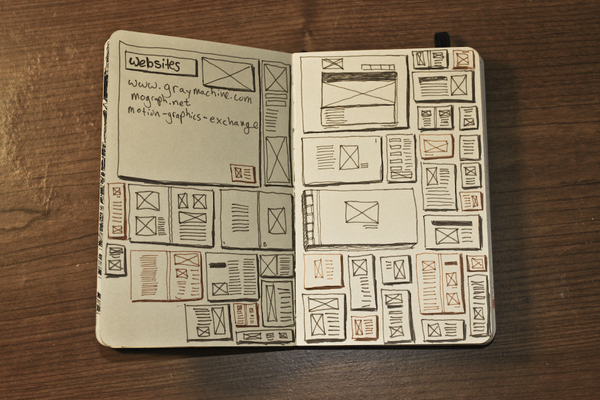 websites
www.graymachine.com
mograph.net
motion-graphics-exchange